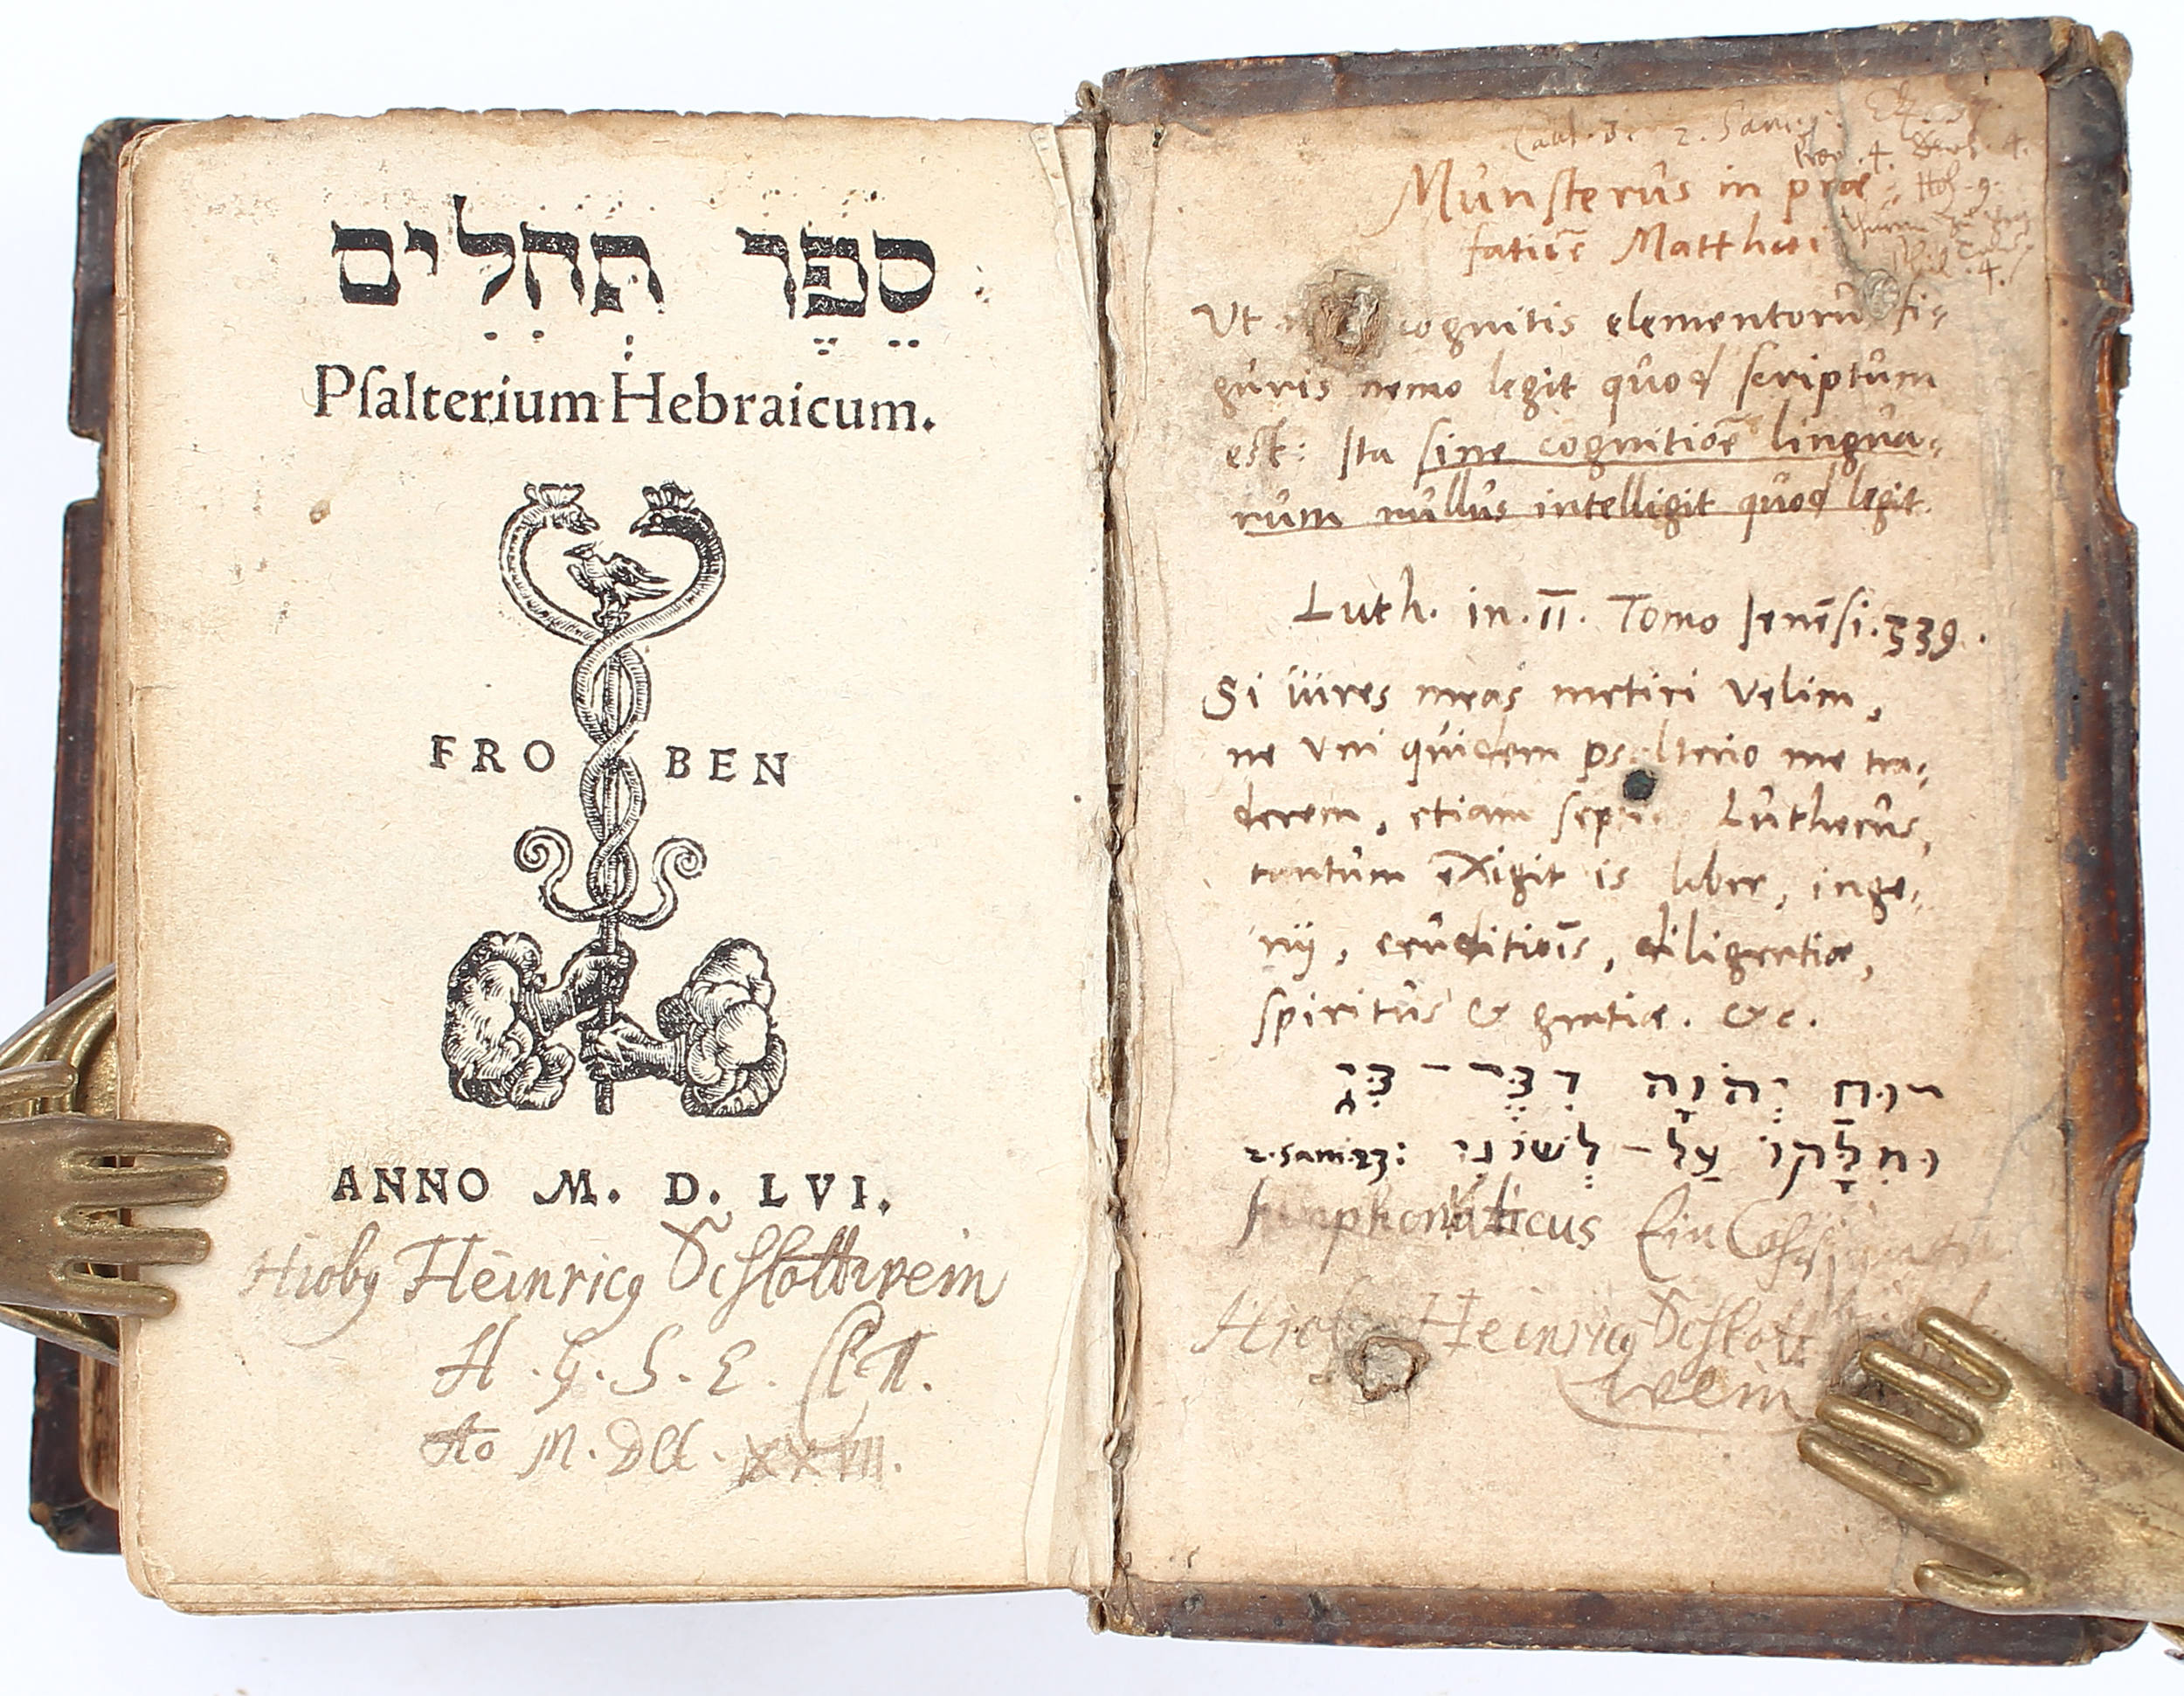 סֵפֶר תְּהִלִּים
Pſalterium Hebraicum.
FRO BEN
ANNO M. D. LVI.
Heinricg Dſchlottwein
H . G . S . E .
Ao M. DCC. XXVIII.
2. Sam. 4.
Hos. 9.
Phil. 4.
Munſterus in præ⸗
fatiōe Matthæi
Ut cognitis elementorū fi⸗
guris nemo legit quod ſcriptum
est: Ita ſine cognitiōe lingua⸗
rum nullus intelligit quod legit.
Luth. in . II . Tomo Ienēſi . 339 .
Si vires meas metiri velim,
ne vni quidem psalterio me tra⸗
derem, etiam Lutherus,
tantum exigit is liber, inge⸗
nij, eruditiōis, diligentiæ,
ſpiritus & gratiæ. &c.
רוּחַ יְהוָה דִּבֶּר־בִּי
וּמִלָּתוֹ עַל־לְשׁוֹנִי 2. Sam. 23:
Ein
Heinricg Dſchlott
wein